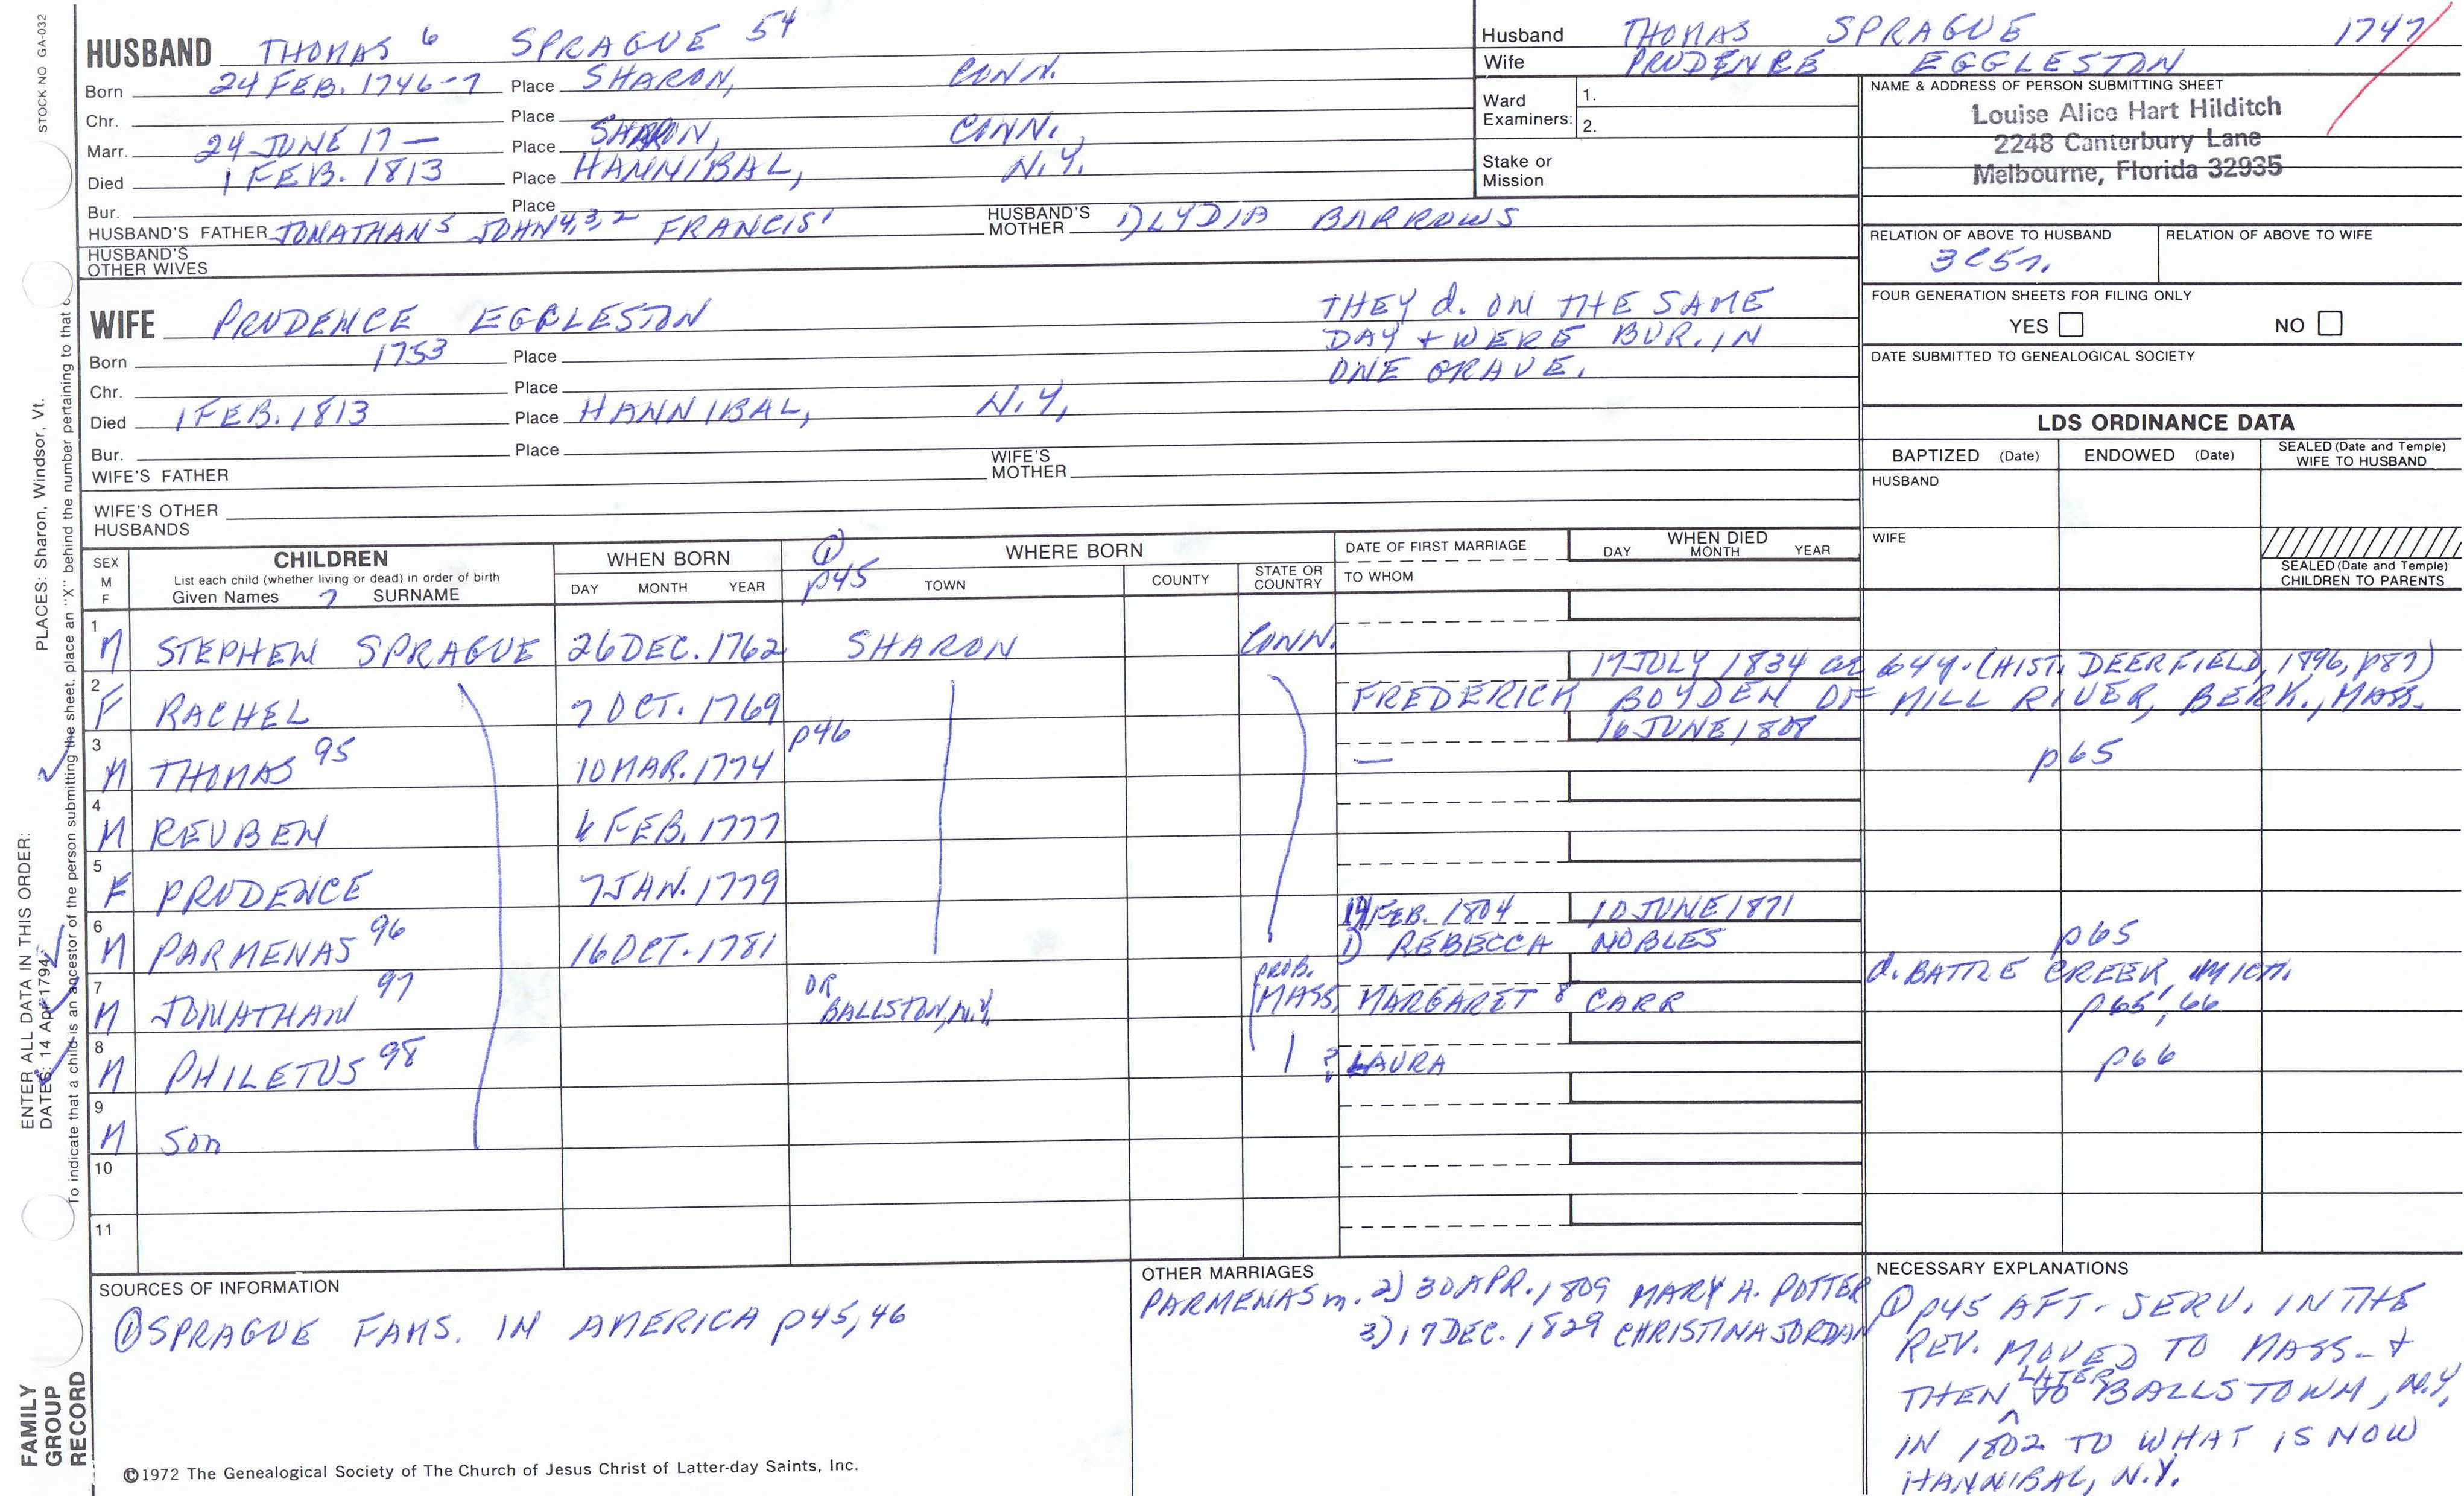 STOCK NO GA-032
HUSBAND THOMAS 6 SPRAGUE 54
Born 24 FEB. 1746-7 Place SHARON, CONN.
Chr. Place
Marr. 24 JUNE 17— Place SHARON, CONN.
Died 1 FEB. 1813 Place HANNIBAL, N.Y.
Bur. Place
HUSBAND'S FATHER JONATHAN5 JOHN4,3,2 FRANCIS1 HUSBAND'S MOTHER 1) LYDIA BARROWS
HUSBAND'S OTHER WIVES
Husband THOMAS SPRAGUE 1747
Wife PRUDENCE EGGLESTON
Ward Examiners: 1.
2.
Stake or Mission
NAME & ADDRESS OF PERSON SUBMITTING SHEET
Louise Alice Hart Hilditch
2248 Canterbury Lane
Melbourne, Florida 32935
RELATION OF ABOVE TO HUSBAND RELATION OF ABOVE TO WIFE
3C5r.
FOUR GENERATION SHEETS FOR FILING ONLY
YES NO
DATE SUBMITTED TO GENEALOGICAL SOCIETY
WIFE PRUDENCE EGGLESTON
Born 1753 Place
Chr. Place
Died 1 FEB. 1813 Place HANNIBAL, N.Y.
Bur. Place
WIFE'S FATHER WIFE'S MOTHER
WIFE'S OTHER HUSBANDS
THEY d. ON THE SAME
DAY + WERE BUR. IN
ONE GRAVE.
LDS ORDINANCE DATA
BAPTIZED (Date) ENDOWED (Date) SEALED (Date and Temple) WIFE TO HUSBAND
HUSBAND
WIFE
SEALED (Date and Temple) CHILDREN TO PARENTS
SEX M F
CHILDREN
List each child (whether living or dead) in order of birth
Given Names 7 SURNAME
WHEN BORN
DAY MONTH YEAR
① p45
WHERE BORN
TOWN COUNTY STATE OR COUNTRY
DATE OF FIRST MARRIAGE
TO WHOM
WHEN DIED
DAY MONTH YEAR
1 M STEPHEN SPRAGUE 26 DEC. 1762 SHARON CONN.
17 JULY 1834 ae 64y. (HIST. DEERFIELD, 1896, p87)
2 F RACHEL 7 OCT. 1769 FREDERICK BOYDEN OF MILL RIVER, BERK., MASS.
p46 16 JUNE 1808
3 M THOMAS 95 10 MAR. 1774 — p65
4 M REUBEN 6 FEB. 1777
5 F PRUDENCE 7 JAN. 1779
14 FEB. 1804 10 JUNE 1871
6 M PARMENAS 96 16 OCT. 1781 1) REBECCA NOBLES p65
d. BATTLE CREEK, MICH.
7 M JONATHAN 97 OR BALLSTON, N.Y. PROB. MASS. MARGARET 8 CARR p65, 66
8 M PHILETUS 98 ? LAURA p66
9 M Son
10
11
SOURCES OF INFORMATION
① SPRAGUE FAMS. IN AMERICA p45, 46
OTHER MARRIAGES
PARMENAS m. 2) 30 APR. 1809 MARY A. POTTER
3) 17 DEC. 1829 CHRISTINA JORDAN
NECESSARY EXPLANATIONS
① p45 AFT. SERV. IN THE
REV. MOVED TO MASS. +
THEN LATER TO BALLSTOWN, N.Y.
IN 1802 TO WHAT IS NOW
HANNIBAL, N.Y.
©1972 The Genealogical Society of The Church of Jesus Christ of Latter-day Saints, Inc.
FAMILY
GROUP
RECORD
ENTER ALL DATA IN THIS ORDER:
DATES: 14 Apr 1794
PLACES: Sharon, Windsor, Vt.
To indicate that a child is an ancestor of the person submitting the sheet, place an "X" behind the number pertaining to that